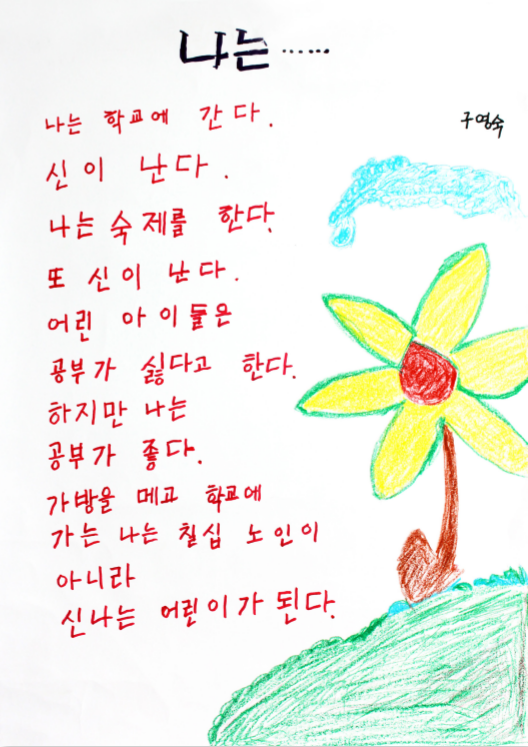 나는 ......
구영숙
나는 학교에 간다.
신이 난다.
나는 숙제를 한다.
또 신이 난다.
어린 아이들은
공부가 싫다고 한다.
하지만 나는
공부가 좋다.
가방을 메고 학교에
가는 나는 칠십 노인이
아니라
신나는 어린이가 된다.